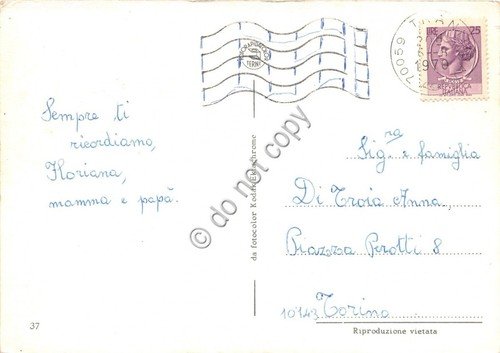 Sempre ti
ricordiamo,
Floriana,
mamma e papà.
37
da fotocolor Kodak Ektachrome
do not copy
70059
1970
LIRE 25
Sig.ra e famiglia
Di Troia Anna
Piazza Perotti 8
10143 Torino
Riproduzione vietata